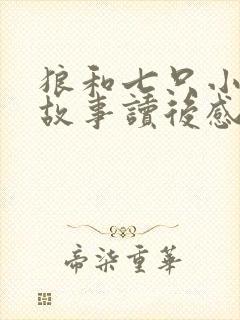 狼和七只小
故事讀後感
帝柒重華